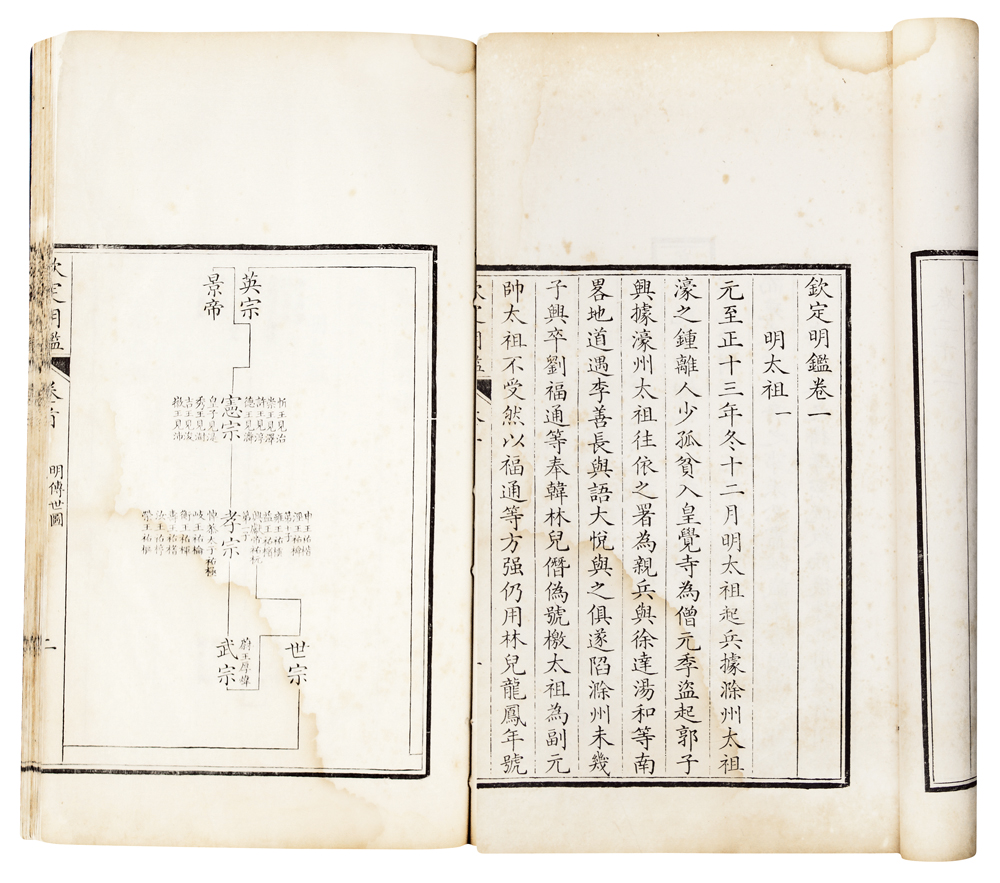 欽定明鑑卷一
明太祖一
元至正十三年冬十二月明太祖起兵據滁州太祖
濠之鍾離人少孤貧入皇覺寺為僧元季盜起郭子
興據濠州太祖往依之署為親兵與徐達湯和等南
畧地道遇李善長與語大悅與之俱遂陷滁州未幾
子興卒劉福通等奉韓林兒僭偽號檄太祖為副元
帥太祖不受然以福通等方强仍用林兒龍鳳年號
英宗
景帝
忻王見治
崇王見澤
許王見淳
德王見潾
憲宗
秀王見澍
吉王見浚
徽王見沛
孝宗
岐王祐棆
世宗
蔚王厚煒
武宗
欽定明鑑
卷首
明傳世圖
二